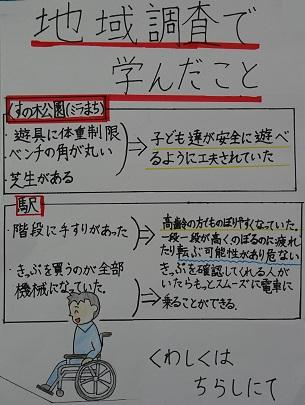 地域調査で
学んだこと
くすの木公園(ミラまち)
・遊具に体重制限
ベンチの角が丸い
・芝生がある
子ども達が安全に遊べ
るように工夫されていた
駅
・階段に手すりがあった
高齢の方でものぼりやすくなっていた。
一段一段が高く、のぼるのに疲れ
たり転ぶ可能性があり危ない
・きっぷを買うのが全部
機械になっていた。
きっぷを確認してくれる人が
いたらもっとスムーズに電車に
乗ることができる.
くわしくは
ちらしにて